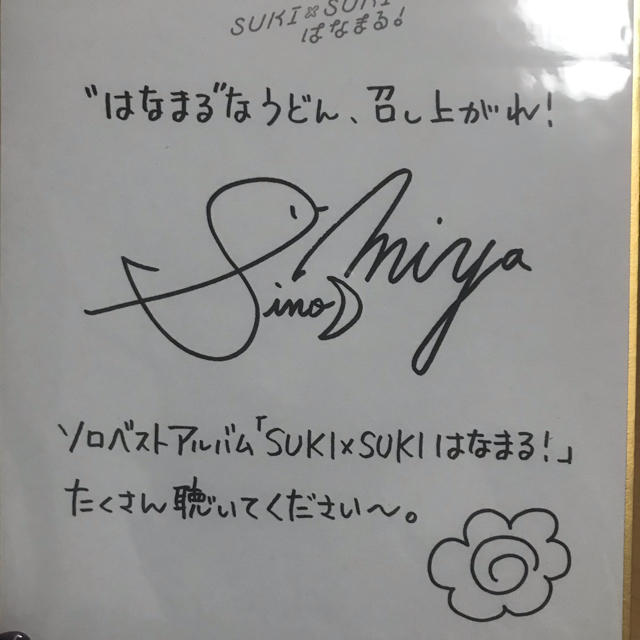 SUKI×SUKI
はなまる!
"はなまる"なうどん、召し上がれ!
Sino Miya
ソロベストアルバム「SUKI×SUKIはなまる!」
たくさん聴いてください〜。